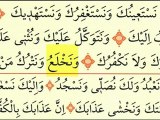 نَسْتَعِينُكَ وَنَسْتَغْفِرُكَ وَنَسْتَهْدِيكَ
إِلَيْكَ وَنَتَوَكَّلُ عَلَيْكَ وَنُثْنِي
وَلَا نَكْفُرُكَ وَنَخْلَعُ وَنَتْرُكُ مَنْ
نَعْبُدُ وَلَكَ نُصَلِّي وَنَسْجُدُ وَإِلَيْكَ نَسْعَى
وَنَخْشَى عَذَابَكَ إِنَّ عَذَابَكَ